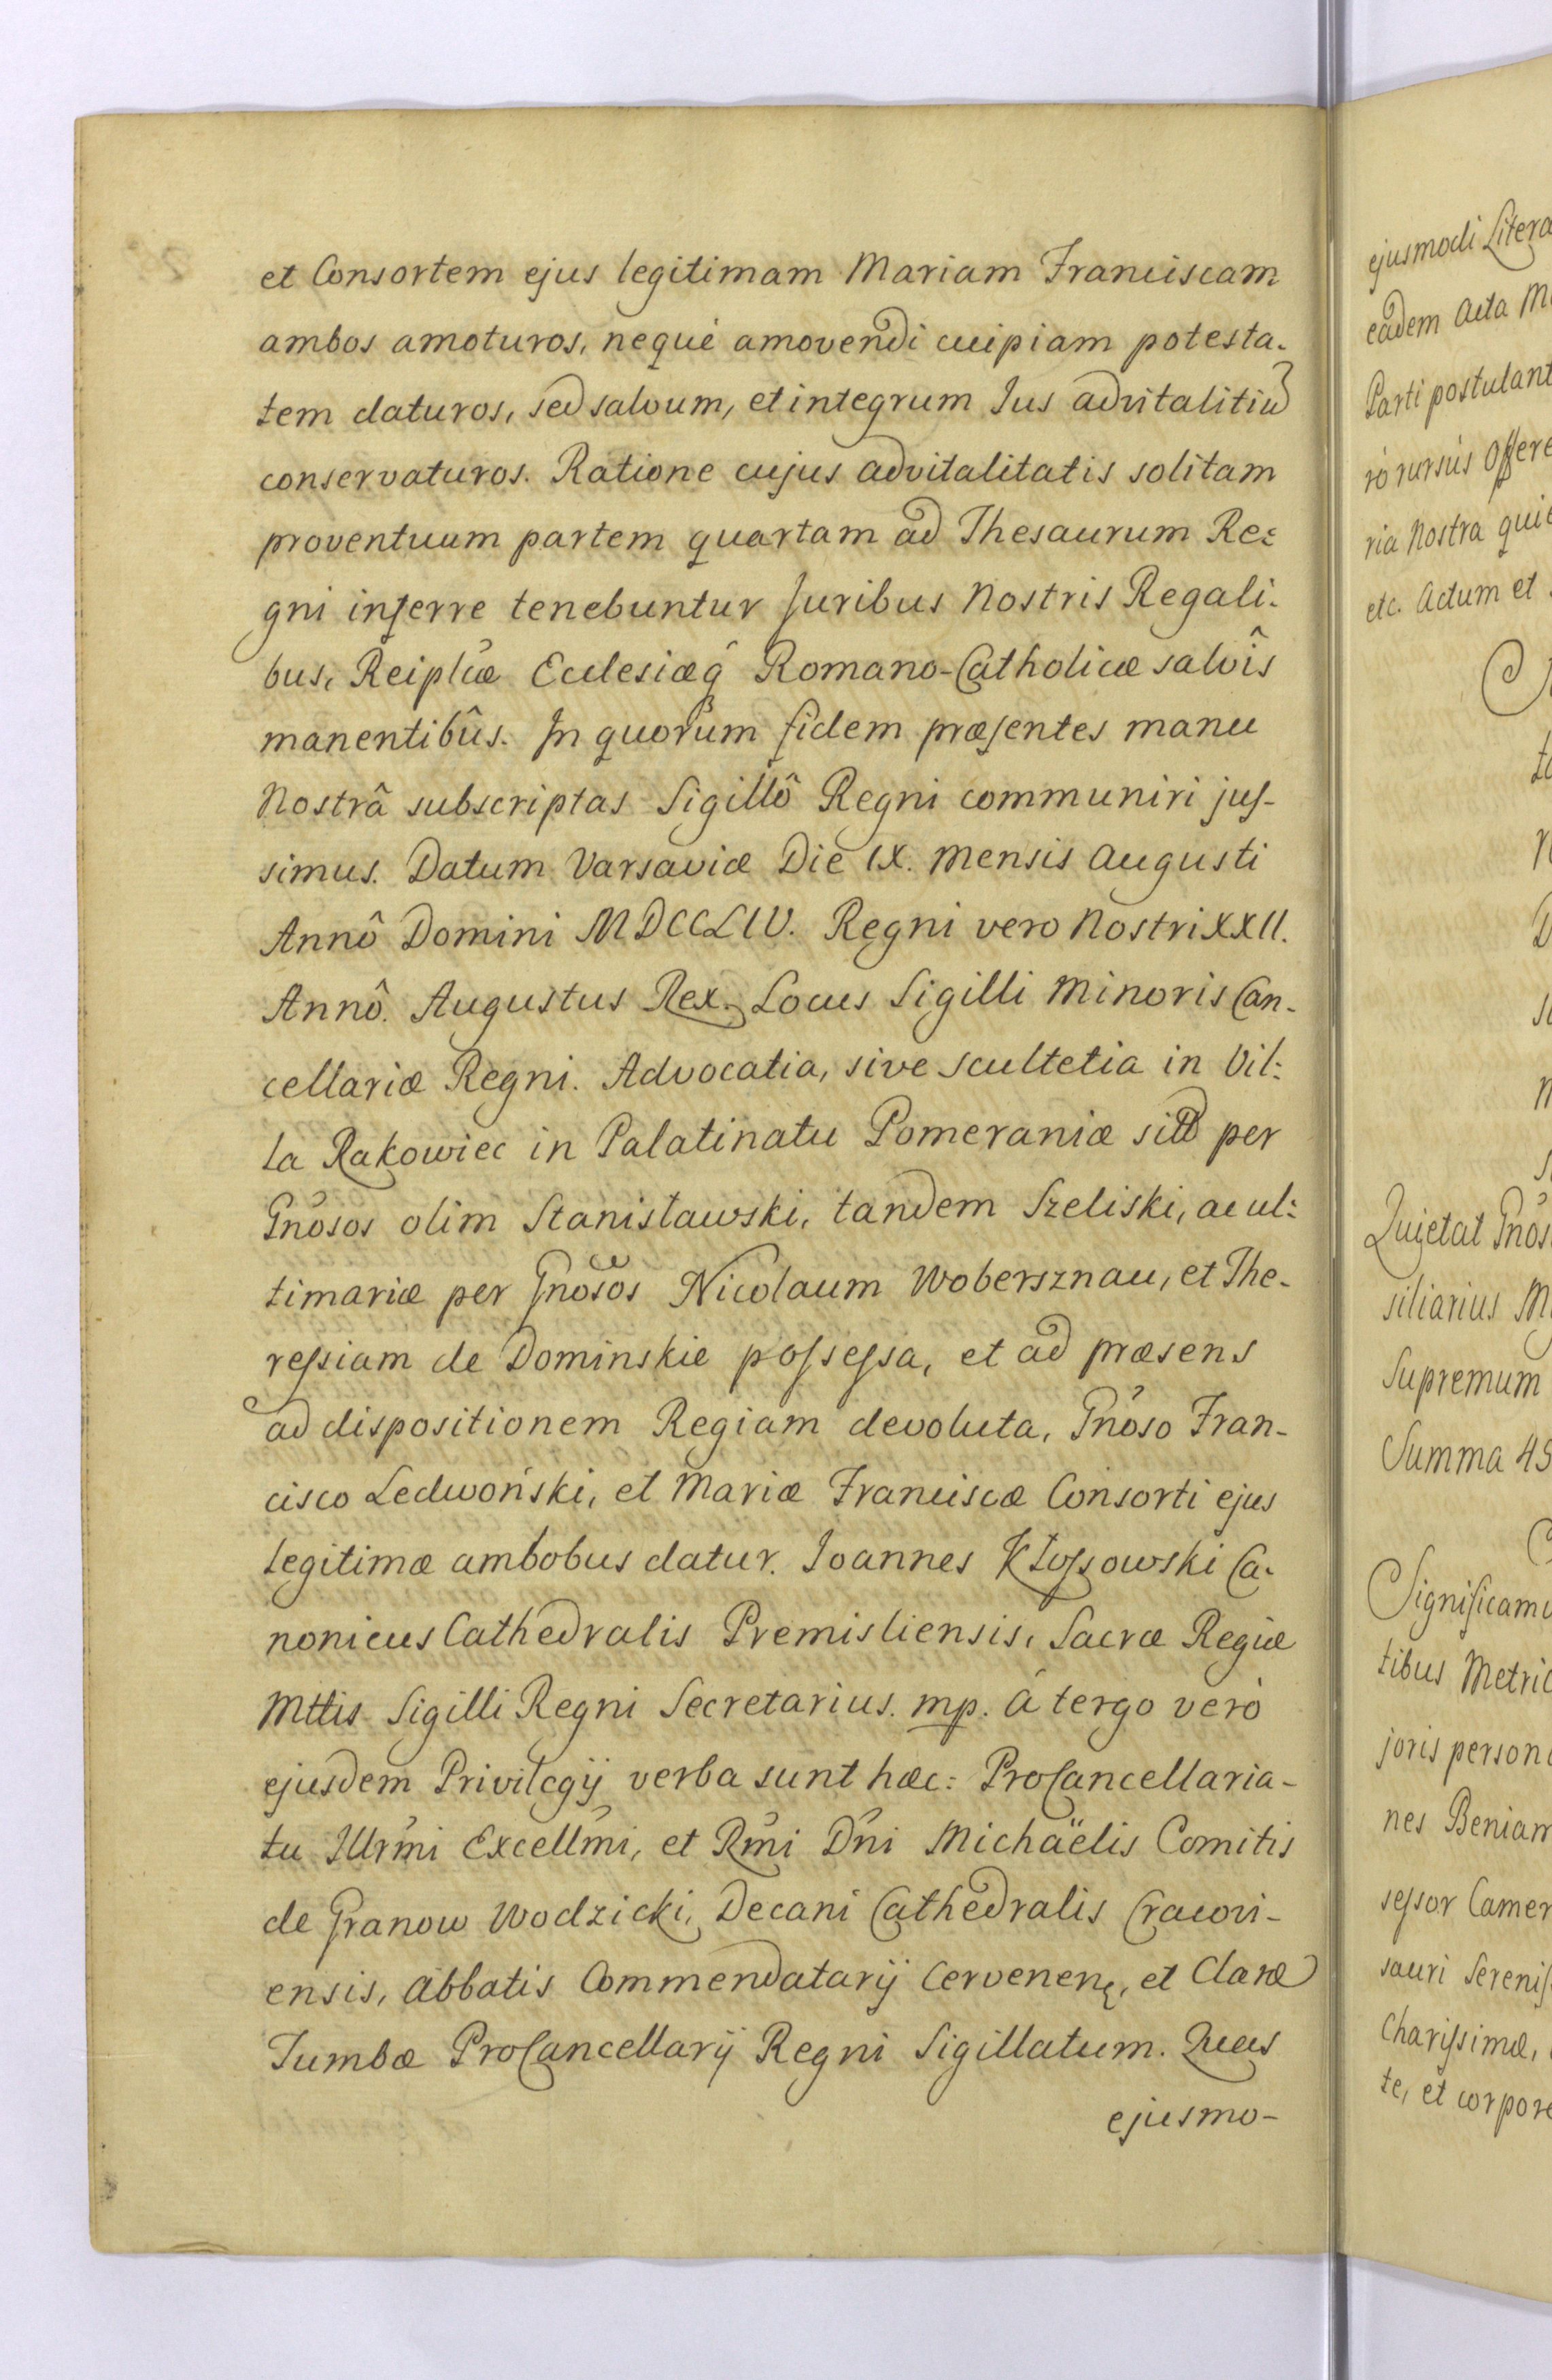 et Consortem ejus legitimam Mariam Franciscam
ambos amoturos, neque amovendi cuipiam potesta-
tem daturos, sed salvum, et integrum Jus advitalitiũ
conservaturos. Ratione cujus advitalitatis solitam
proventuum partem quartam ad Thesaurum Re:
gni inferre tenebuntur Juribus Nostris Regali:
bus, Reiplicæ Ecclesiæq̃ Romano-Catholicæ salvîs
manentibûs. In quorum fidem præsentes manu
Nostrâ subscriptas Sigillô Regni communiri jus-
simus. Datum Varsaviæ Die IX. Mensis Augusti
Annô Domini MDCCLIV. Regni vero Nostri XXII.
Annô. Augustus Rex. Locus Sigilli Minoris Can-
cellariæ Regni. Advocatia, sive scultetia in Vil:
la Rakowiec in Palatinatu Pomeraniæ sita per
Gnosos olim Stanisławski, tandem Szeliski, ac ul:
timariæ per Gnosos Nicolaum Wobersznau, et The-
ressiam de Dominskie possessa, et ad præsens
ad dispositionem Regiam devoluta, Gnoso Fran-
cisco Ledwoński, et Mariæ Franciscæ Consorti ejus
legitimæ ambobus datur. Joannes Kłossowski Ca-
nonicus Cathedralis Premisliensis, Sacræ Regiæ
Mttis Sigilli Regni Secretarius. mp. â tergo verò
ejusdem Privilegij verba sunt hæc: ProCancellaria-
tu Illrmi Excellmi, et Rmi Dni Michaëlis Comitis
de Granow Wodzicki, Decani Cathedralis Cracovi-
ensis, Abbatis Commendatarij Cervenen, et Claræ
Tumbæ ProCancellarij Regni Sigillatum. Quas
ejusmo-
ejusmodi Litera
eadem Acta M
Parti postulant
rò rursus Offere
ria Nostra qui
etc. Actum et
Quietat Gnos
siliarius M
Supremum
Summa 45
Significamu
tibus Metric
joris person
nes Beniam
sessor Camer
sauri Serenis
Charissimæ,
te, et corpore